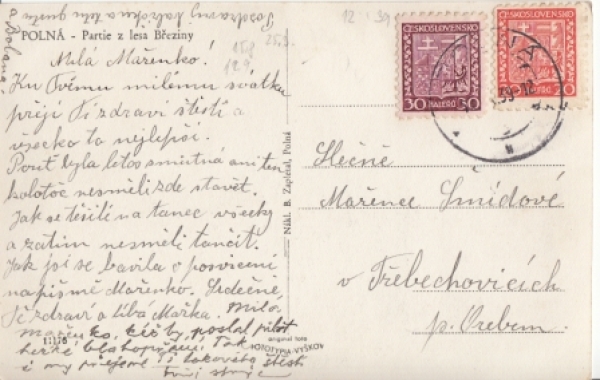 POLNÁ - Partie z lesa Březiny
Milá Mařenko!
Ku Tvému milému svátku
přeji Ti zdraví štěstí a
všecko to nejlepší.
Pouť byla letos smutná ani ten
kolotoč nesměli zde stavět.
Jak se těšili na tanec všecky
a zatím nesměli tančit.
Jak jsi se bavila o posvícení
napiš mě Mařenko. Srdečně
Tě zdraví a líbá Mařka. Milá
Mařenko, kéž by poslal
Tak
i my přejeme Ti takového štěstí
Tvůj
11176
Nákl. B. Zapletal, Polná
original foto
FOTOTYPIA-VYŠKOV
12 39
15.8
12.9.
25.9.
ČESKOSLOVENSKO
30 HALÉŘŮ 30
ČESKOSLOVENSKO
20
Slečně
Mařence Smídové
v Třebechovicích
p. Orebem.